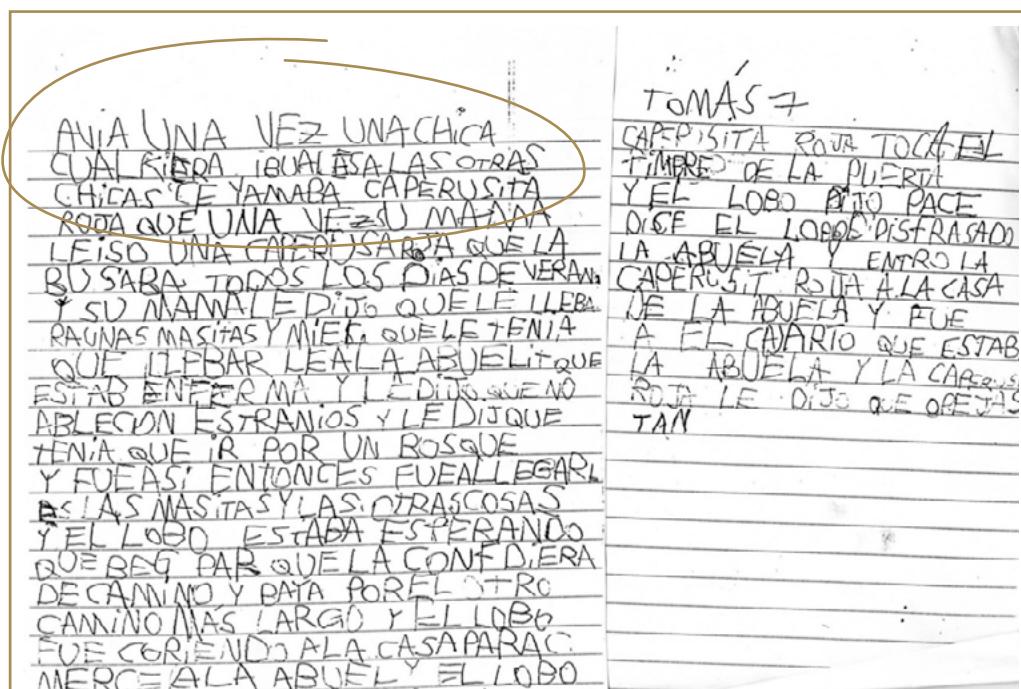 AVIA UNA VEZ UNA CHICA
CUALKIERA IGUALESA LAS OTRAS
CHICAS CE YAMABA CAPERUSITA
ROJA QUE UNA VEZ SU MAMA
LEISO UNA CAPERUSAROJA QUE LA
BUSABA TODOS LOS DIAS DE VERAN
Y SU MAMA LE DIJO QUE LE LLEBA
RAUNAS MASITAS Y MIEL. QUE LE TENIA
QUE LLEBAR LEALA ABUELIT QUE
ESTAB ENFERMA Y LE DIJO QUE NO
ABLECON ESTRANIOS Y LE DIJ QUE
TENIA QUE IR POR UN BOSQUE
Y FUE ASI ENTONCES FUE A LLEGARL
LAS MASITAS Y LAS OTRAS COSAS
Y EL LOBO ESTABA ESPERANDO
QUE PAR QUE LA CONFDIERA
DE CAMINO Y BAYA POR EL OTRO
CAMINO MÁS LARGO Y EL LOBO
FUE CORIENDO A LA CASA PARA C
MERCE A LA ABUEL Y EL LOBO
TOMÁS 7
CAPERUSITA ROJA TOCA EL
TIMBRE DE LA PUERTA
Y EL LOBO DIJO PACE
DICE EL LOBO DISFRASADO
LA ABUELA Y ENTRO LA
CAPERUSIT ROJA A LA CASA
DE LA ABUELA Y FUE
A EL CUARIO QUE ESTAB
LA ABUELA Y LA CAPERUSI
ROJA LE DIJO QUE OREJAS
TAN